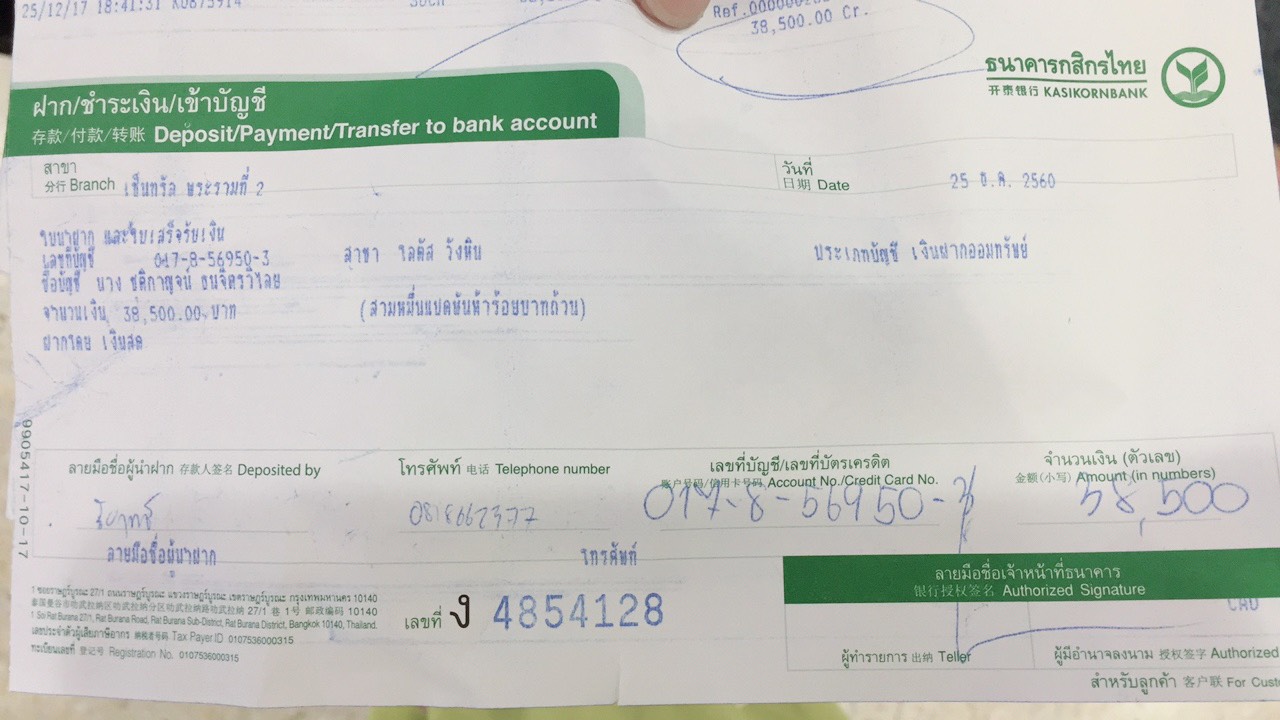 25/12/17 18:41:31 K0873914
38,500.00 Cr.
ธนาคารกสิกรไทย
开泰银行 KASIKORNBANK
ฝาก/ชำระเงิน/เข้าบัญชี
存款/付款/转账 Deposit/Payment/Transfer to bank account
สาขา
分行 Branch เซ็นทรัล พระรามที่ 2
วันที่
日期 Date 25 ธ.ค. 2560
ใบนำฝาก และใบเสร็จรับเงิน
เลขที่บัญชี 017-8-56950-3 สาขา โลตัส วังหิน ประเภทบัญชี เงินฝากออมทรัพย์
ชื่อบัญชี นาง ชติกาญจน์ ธนจิตรวิไลย
จำนวนเงิน 38,500.00 บาท (สามหมื่นแปดพันห้าร้อยบาทถ้วน)
ฝากโดย เงินสด
9905417-10-17
ลายมือชื่อผู้นำฝาก 存款人签名 Deposited by
โทรศัพท์ 电话 Telephone number
เลขที่บัญชี/เลขที่บัตรเครดิต
账户号码/信用卡号码 Account No./Credit Card No.
จำนวนเงิน (ตัวเลข)
金额(小写) Amount (in numbers)
0818662377 017-8-56950-3 38,500
ลายมือชื่อผู้นำฝาก โทรศัพท์
ลายมือชื่อเจ้าหน้าที่ธนาคาร
银行授权签名 Authorized Signature
1 ซอยราษฎร์บูรณะ 27/1 ถนนราษฎร์บูรณะ แขวงราษฎร์บูรณะ เขตราษฎร์บูรณะ กรุงเทพมหานคร 10140
泰国曼谷市叻武拉纳区叻武拉纳分区叻武拉纳路叻武拉纳 27/1 巷 1号 邮政编码 10140
1 Soi Rat Burana 27/1, Rat Burana Road, Rat Burana Sub-District, Rat Burana District, Bangkok 10140, Thailand.
เลขประจำตัวผู้เสียภาษีอากร 纳税者号码 Tax Payer ID 0107536000315
ทะเบียนเลขที่ 登记号 Registration No. 0107536000315
เลขที่ ง 4854128
ผู้ทำรายการ 出纳 Teller
ผู้มีอำนาจลงนาม 授权签字 Authorized
สำหรับลูกค้า 客户联 For Cust